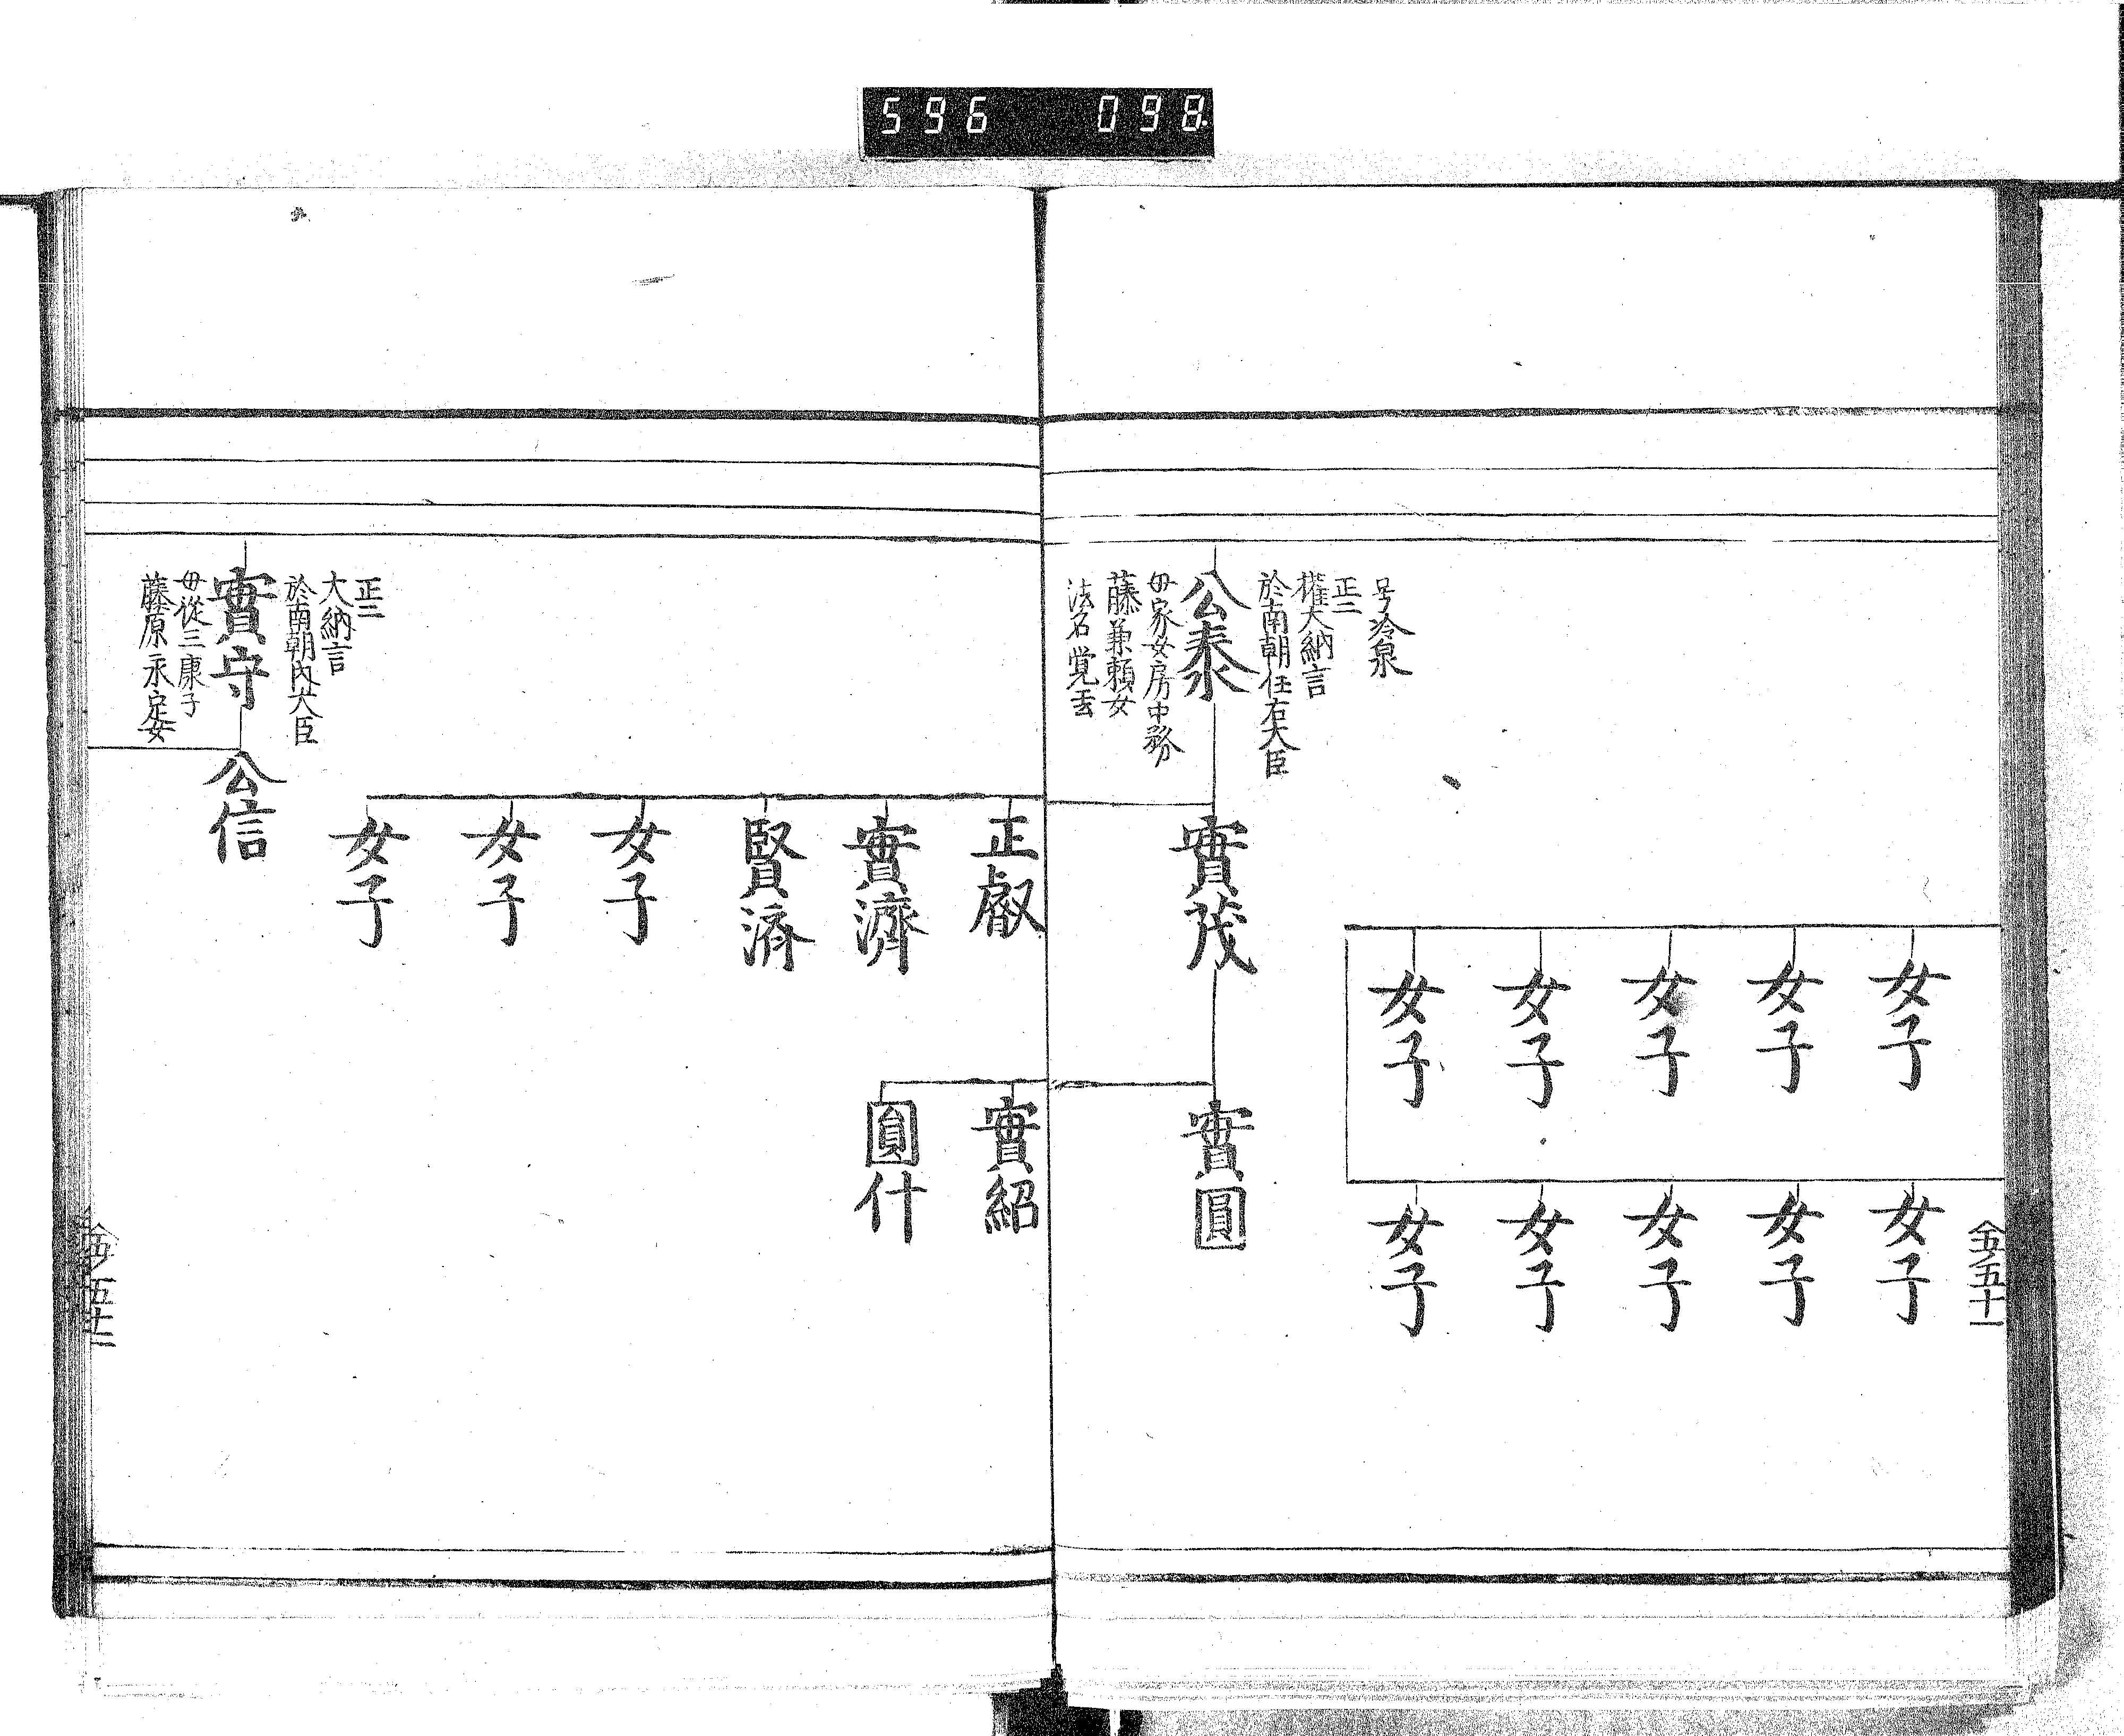 596 098
女子
女子
女子
女子
女子
女子
女子
女子
女子
女子
号冷泉
正二
權大納言
於南朝任右大臣
公泰
母家女房中務
藤兼頼女
法名覚玄
實茂
實圓
正叡
實濟
賢濟
女子
女子
女子
實紹
圓什
正二
大納言
於南朝内大臣
實守
母從三康子
藤原永定女
公信
五十一